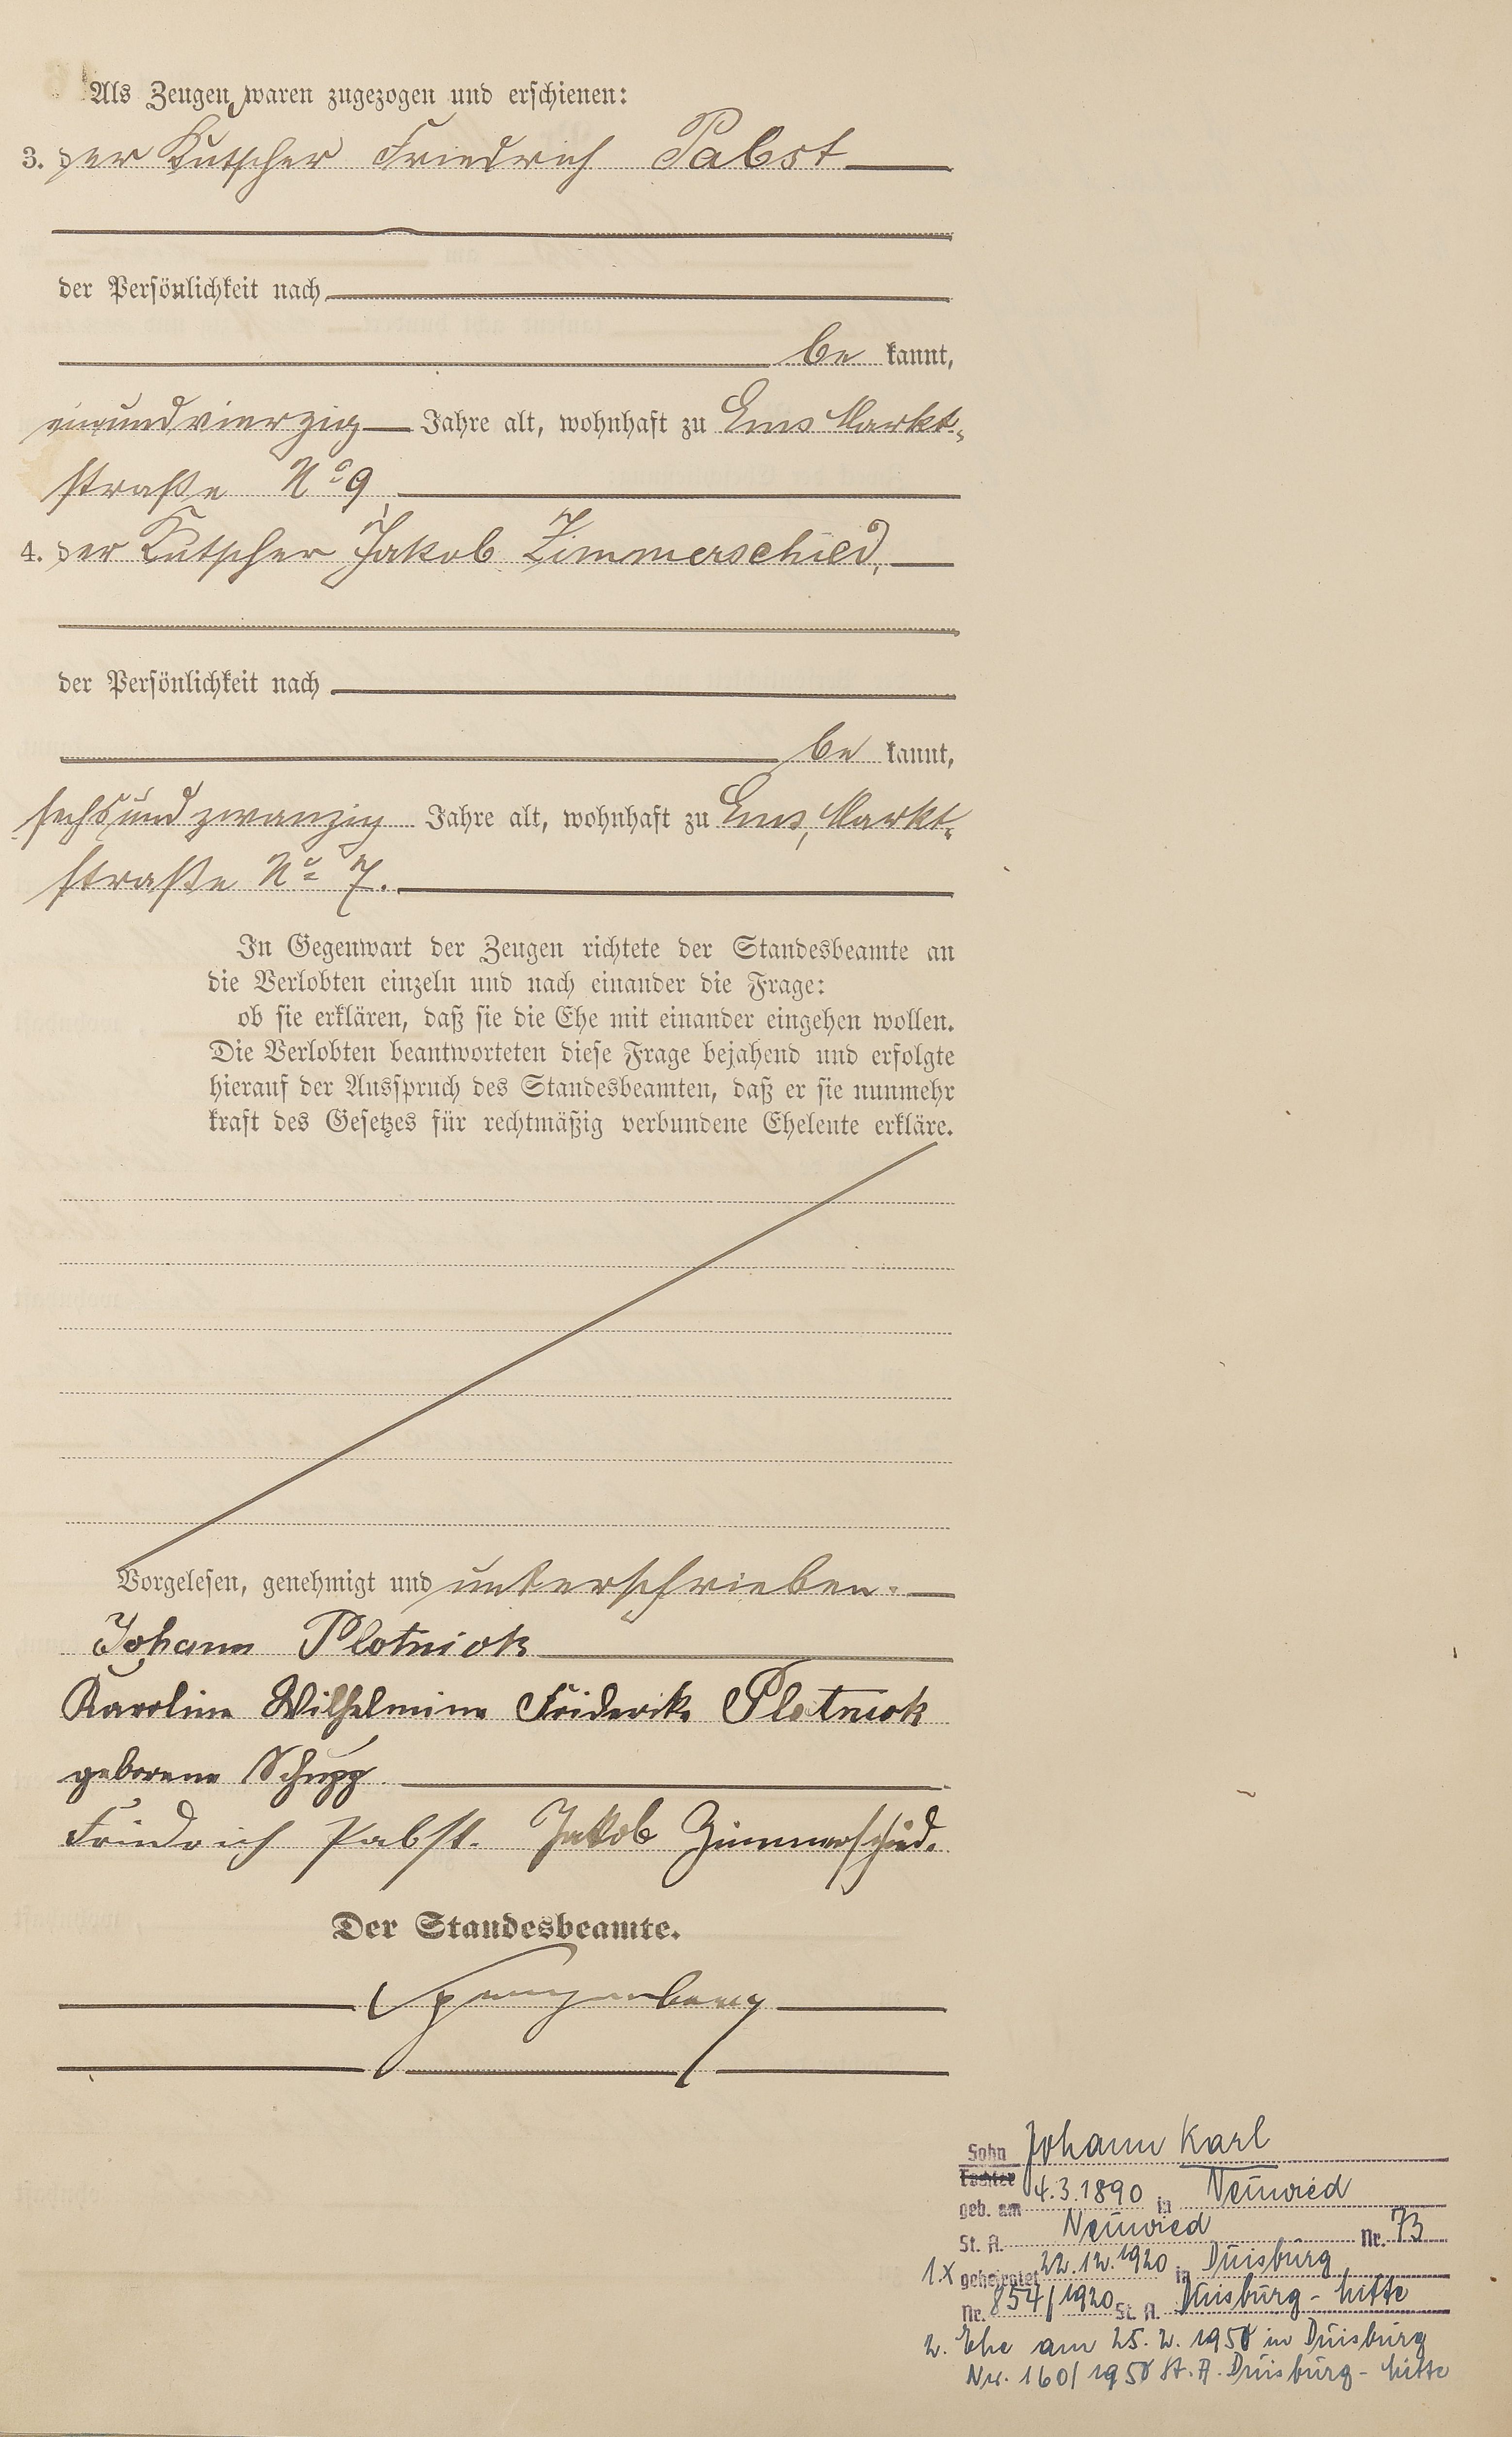 Als Zeugen waren zugezogen und erschienen:
3. der Kutscher Friedrich Pabst
der Persönlichkeit nach
be kannt,
einundvierzig Jahre alt, wohnhaft zu Ems Markt-
straße No 9
4. der Kutscher Jakob Zimmerschied,
der Persönlichkeit nach
be kannt,
sechsundzwanzig Jahre alt, wohnhaft zu Ems, Markt-
straße No 7.
In Gegenwart der Zeugen richtete der Standesbeamte an
die Verlobten einzeln und nach einander die Frage:
ob sie erklären, daß sie die Ehe mit einander eingehen wollen.
Die Verlobten beantworteten diese Frage bejahend und erfolgte
hierauf der Ausspruch des Standesbeamten, daß er sie nunmehr
kraft des Gesetzes für rechtmäßig verbundene Eheleute erkläre.
Vorgelesen, genehmigt und unterschrieben.
Johann Plotniok
Karoline Wilhelmine Friderike Plotniok
geborene Schupp
Friedrich Pabst. Jakob Zimmerschied.
Der Standesbeamte.
Spangenberg
Sohn Johann Karl
Tochter
geb. am 4.3.1890 in Neuwied
St. A. Neuwied Nr. 73
1.x geheiratet 22.12.1920 in Duisburg
Nr. 854/1920 St. A. Duisburg-Mitte
2. Ehe am 25.2.1950 in Duisburg
Nr. 160/1950 St. A. Duisburg-Mitte